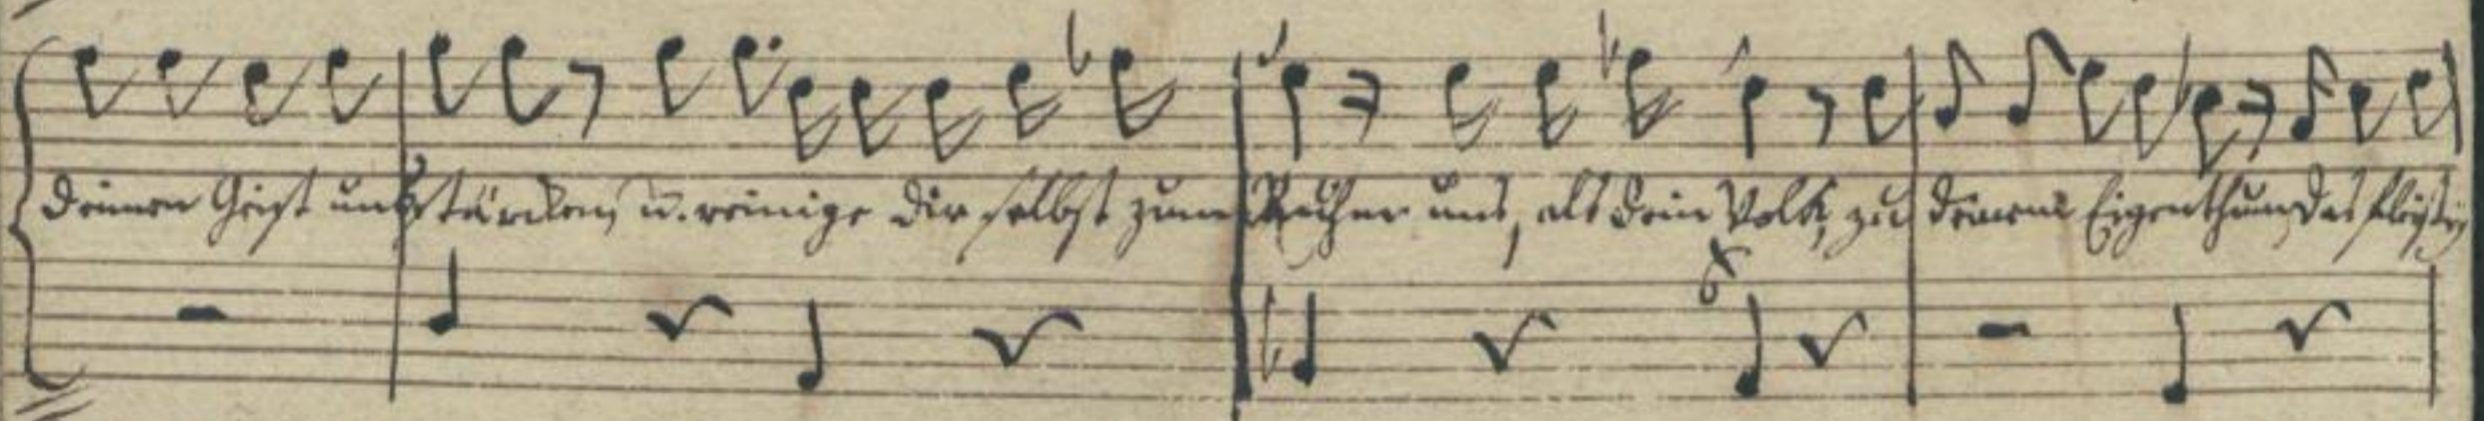 deinen Geist uns stärcken, u. reinige dir selbst zum Ruhm uns, als dein Volk, zu deinem Eigenthum, das fleißig